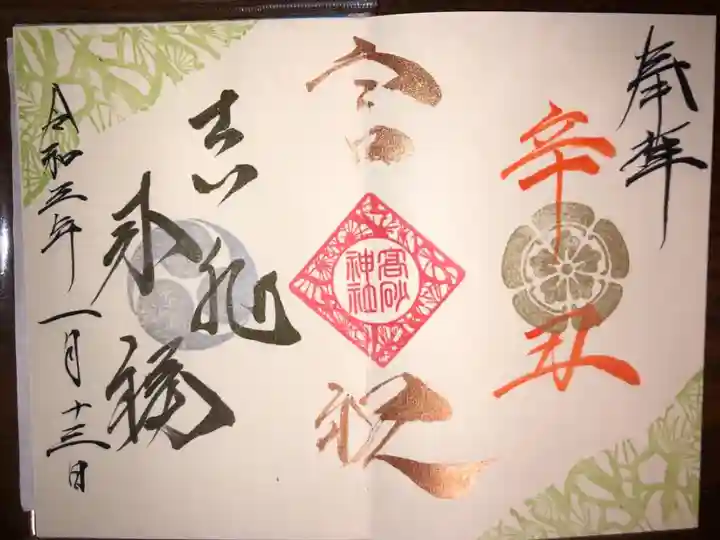 奉拝
辛丑
言祝
高砂
神社
吉兆
令和三年一月十三日